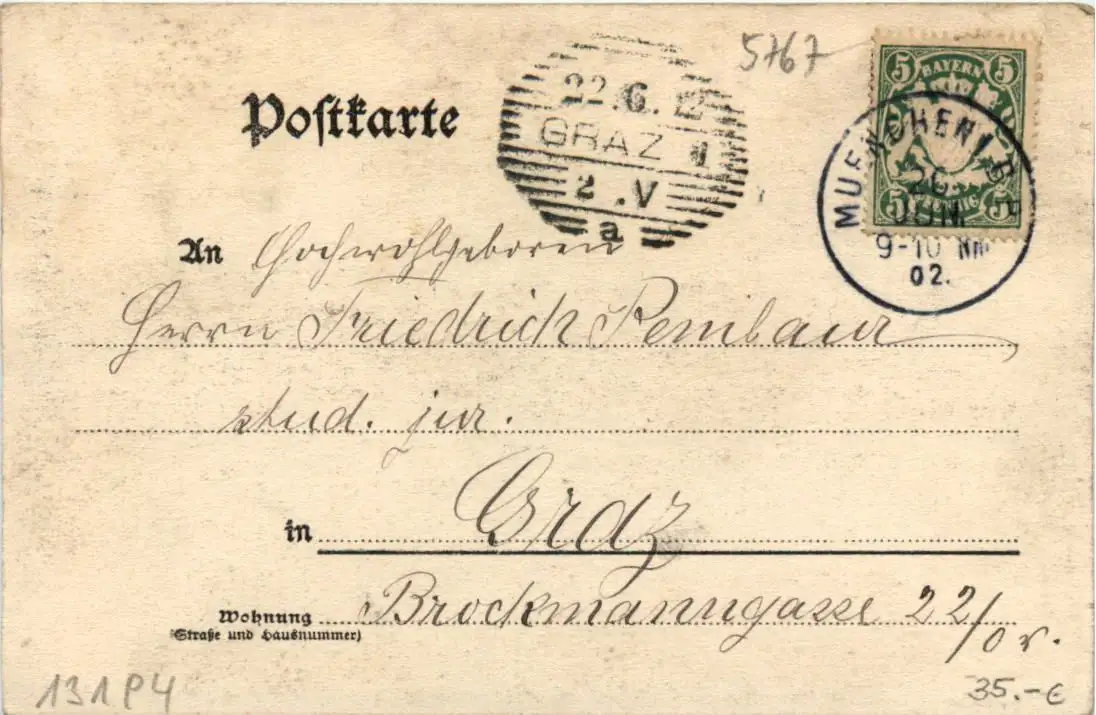 5767
5 BAYERN 5
5 PFENNIG 5
MUENCHEN
20.
JUN.
9-10 Nm
02.
22.6.
GRAZ 1
2 .V
a
Postkarte
An Hochwohlgeboren
Herrn Friedrich Pembaur
stud. jur.
in Graz
Wohnung Brockmanngasse 22/
(Straße und Hausnummer)
131P4
35.-€